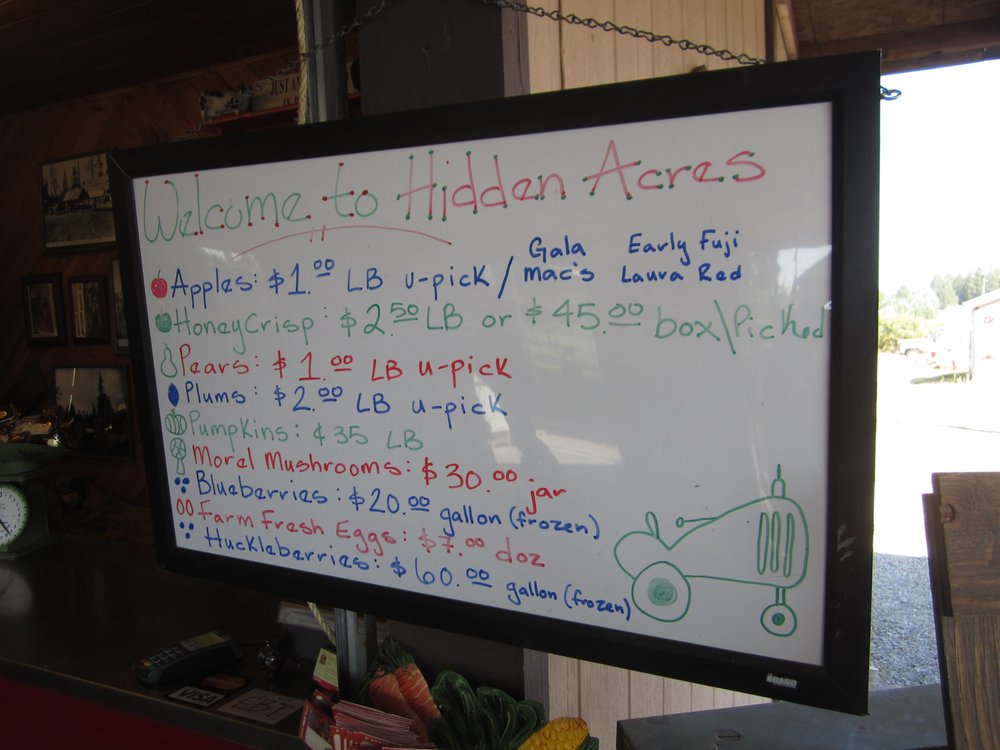 JUST A
IN
Welcome to Hidden Acres
Apples: $1.00 LB u-pick / Gala Early Fuji
mac's Laura Red
HoneyCrisp: $2.50 LB or $45.00 box\Picked
Pears: $1.00 LB u-pick
Plums: $2.00 LB u-pick
Pumpkins: ¢35 LB
Morel Mushrooms: $30.00 jar
Blueberries: $20.00 gallon (frozen)
Farm Fresh Eggs: $7.00 doz
Huckleberries: $60.00 gallon (frozen)
VISA
EBT